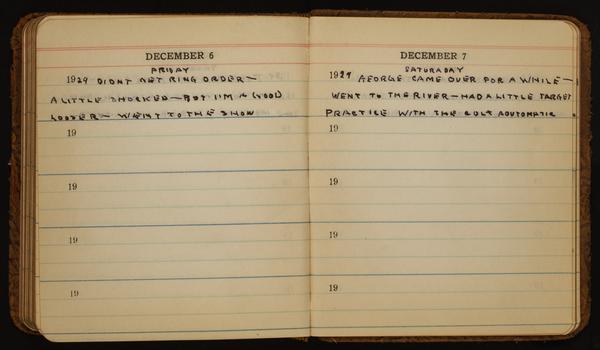 DECEMBER 6
FRIDAY
1929 DIDNT GET RING ORDER—
A LITTLE SHOCKED—BUT I'M A GOOD
LOOSER— WENT TO THE SHOW
19
19
19
19
DECEMBER 7
SATURADAY
1929 GEORGE CAME OVER FOR A WHILE—
WENT TO THE RIVER—HAD A LITTLE TARGET
PRACTICE WITH THE COLT AOUTOMATIC.
19
19
19
19